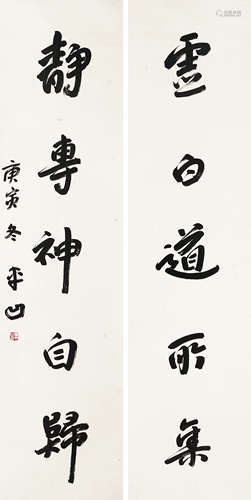 虛白道所集
靜專神自歸
庚寅冬 平凹